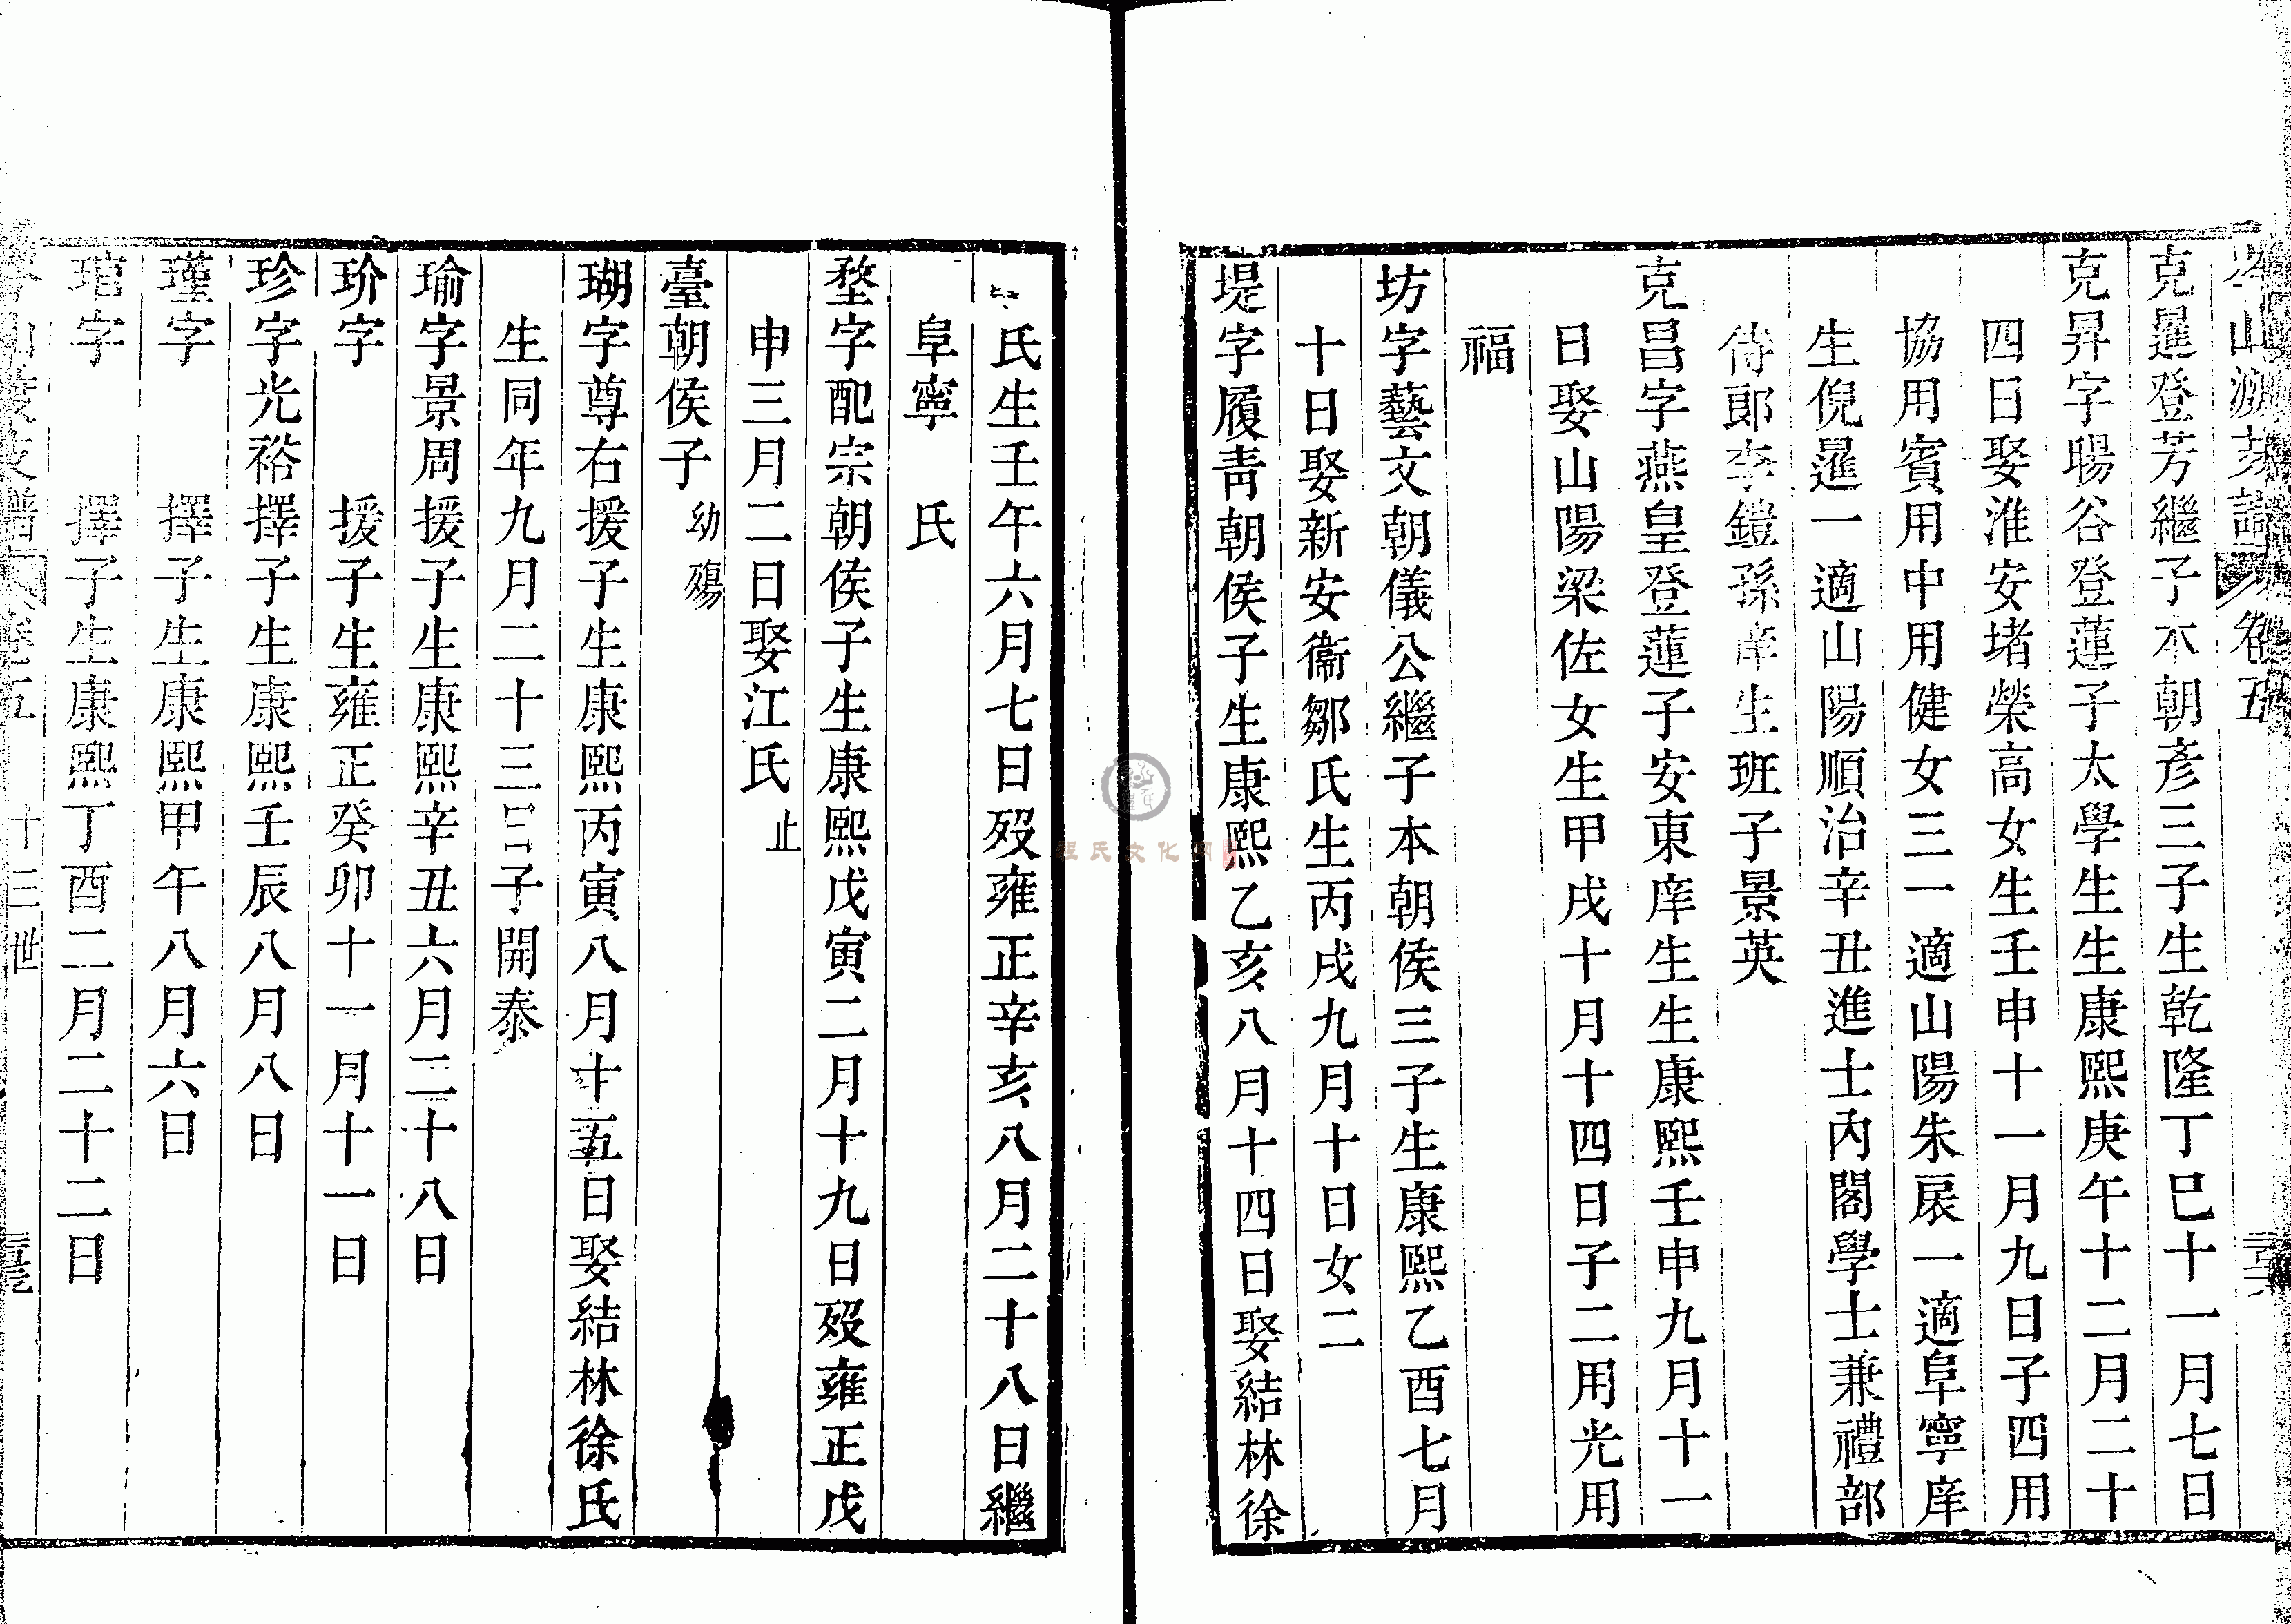 岑山渡支譜 卷五
克暹登芳繼子本朝彥三子生乾隆丁巳十一月七日
克昇字暘谷登蓮子太學生生康熙庚午十二月二十
四日娶淮安堵榮高女生壬申十一月九日子四用
協用賓用中用健女三一適山陽朱扆一適阜寧庠
生倪暹一適山陽順治辛丑進士內閣學士兼禮部
侍郎李鎧孫庠生班子景英
克昌字燕皇登蓮子安東庠生生康熙壬申九月十一
日娶山陽梁佐女生甲戌十月十四日子二用光用
福
坊字藝文朝儀公繼子本朝侯三子生康熙乙酉七月
十日娶新安衞鄒氏生丙戌九月十日女二
堤字履青朝侯子生康熙乙亥八月十四日娶結林徐
氏生壬午六月七日歿雍正辛亥八月二十八日繼
阜寧 氏
堥字配宗朝侯子生康熙戊寅二月十九日歿雍正戊
申三月二日娶江氏 止
臺朝侯子 幼殤
瑚字尊右援子生康熙丙寅八月十五日娶結林徐氏
生同年九月二十三日子開泰
瑜字景周援子生康熙辛丑六月二十八日
玠字 援子生雍正癸卯十一月十一日
珍字光裕擇子生康熙壬辰八月八日
瑾字 擇子生康熙甲午八月六日
琯字 擇子生康熙丁酉二月二十二日
岑山渡支譜 卷五 十三世
程氏文化網